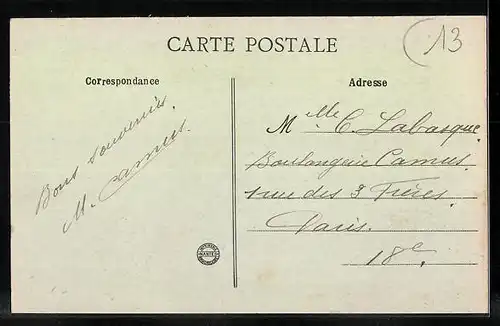 CARTE POSTALE
13
Correspondance
Adresse
Bons souvenirs.
M. Camus.
Mlle C. Labasque
Boulangerie Camus.
rue des 3 Frères.
Paris.
18e.